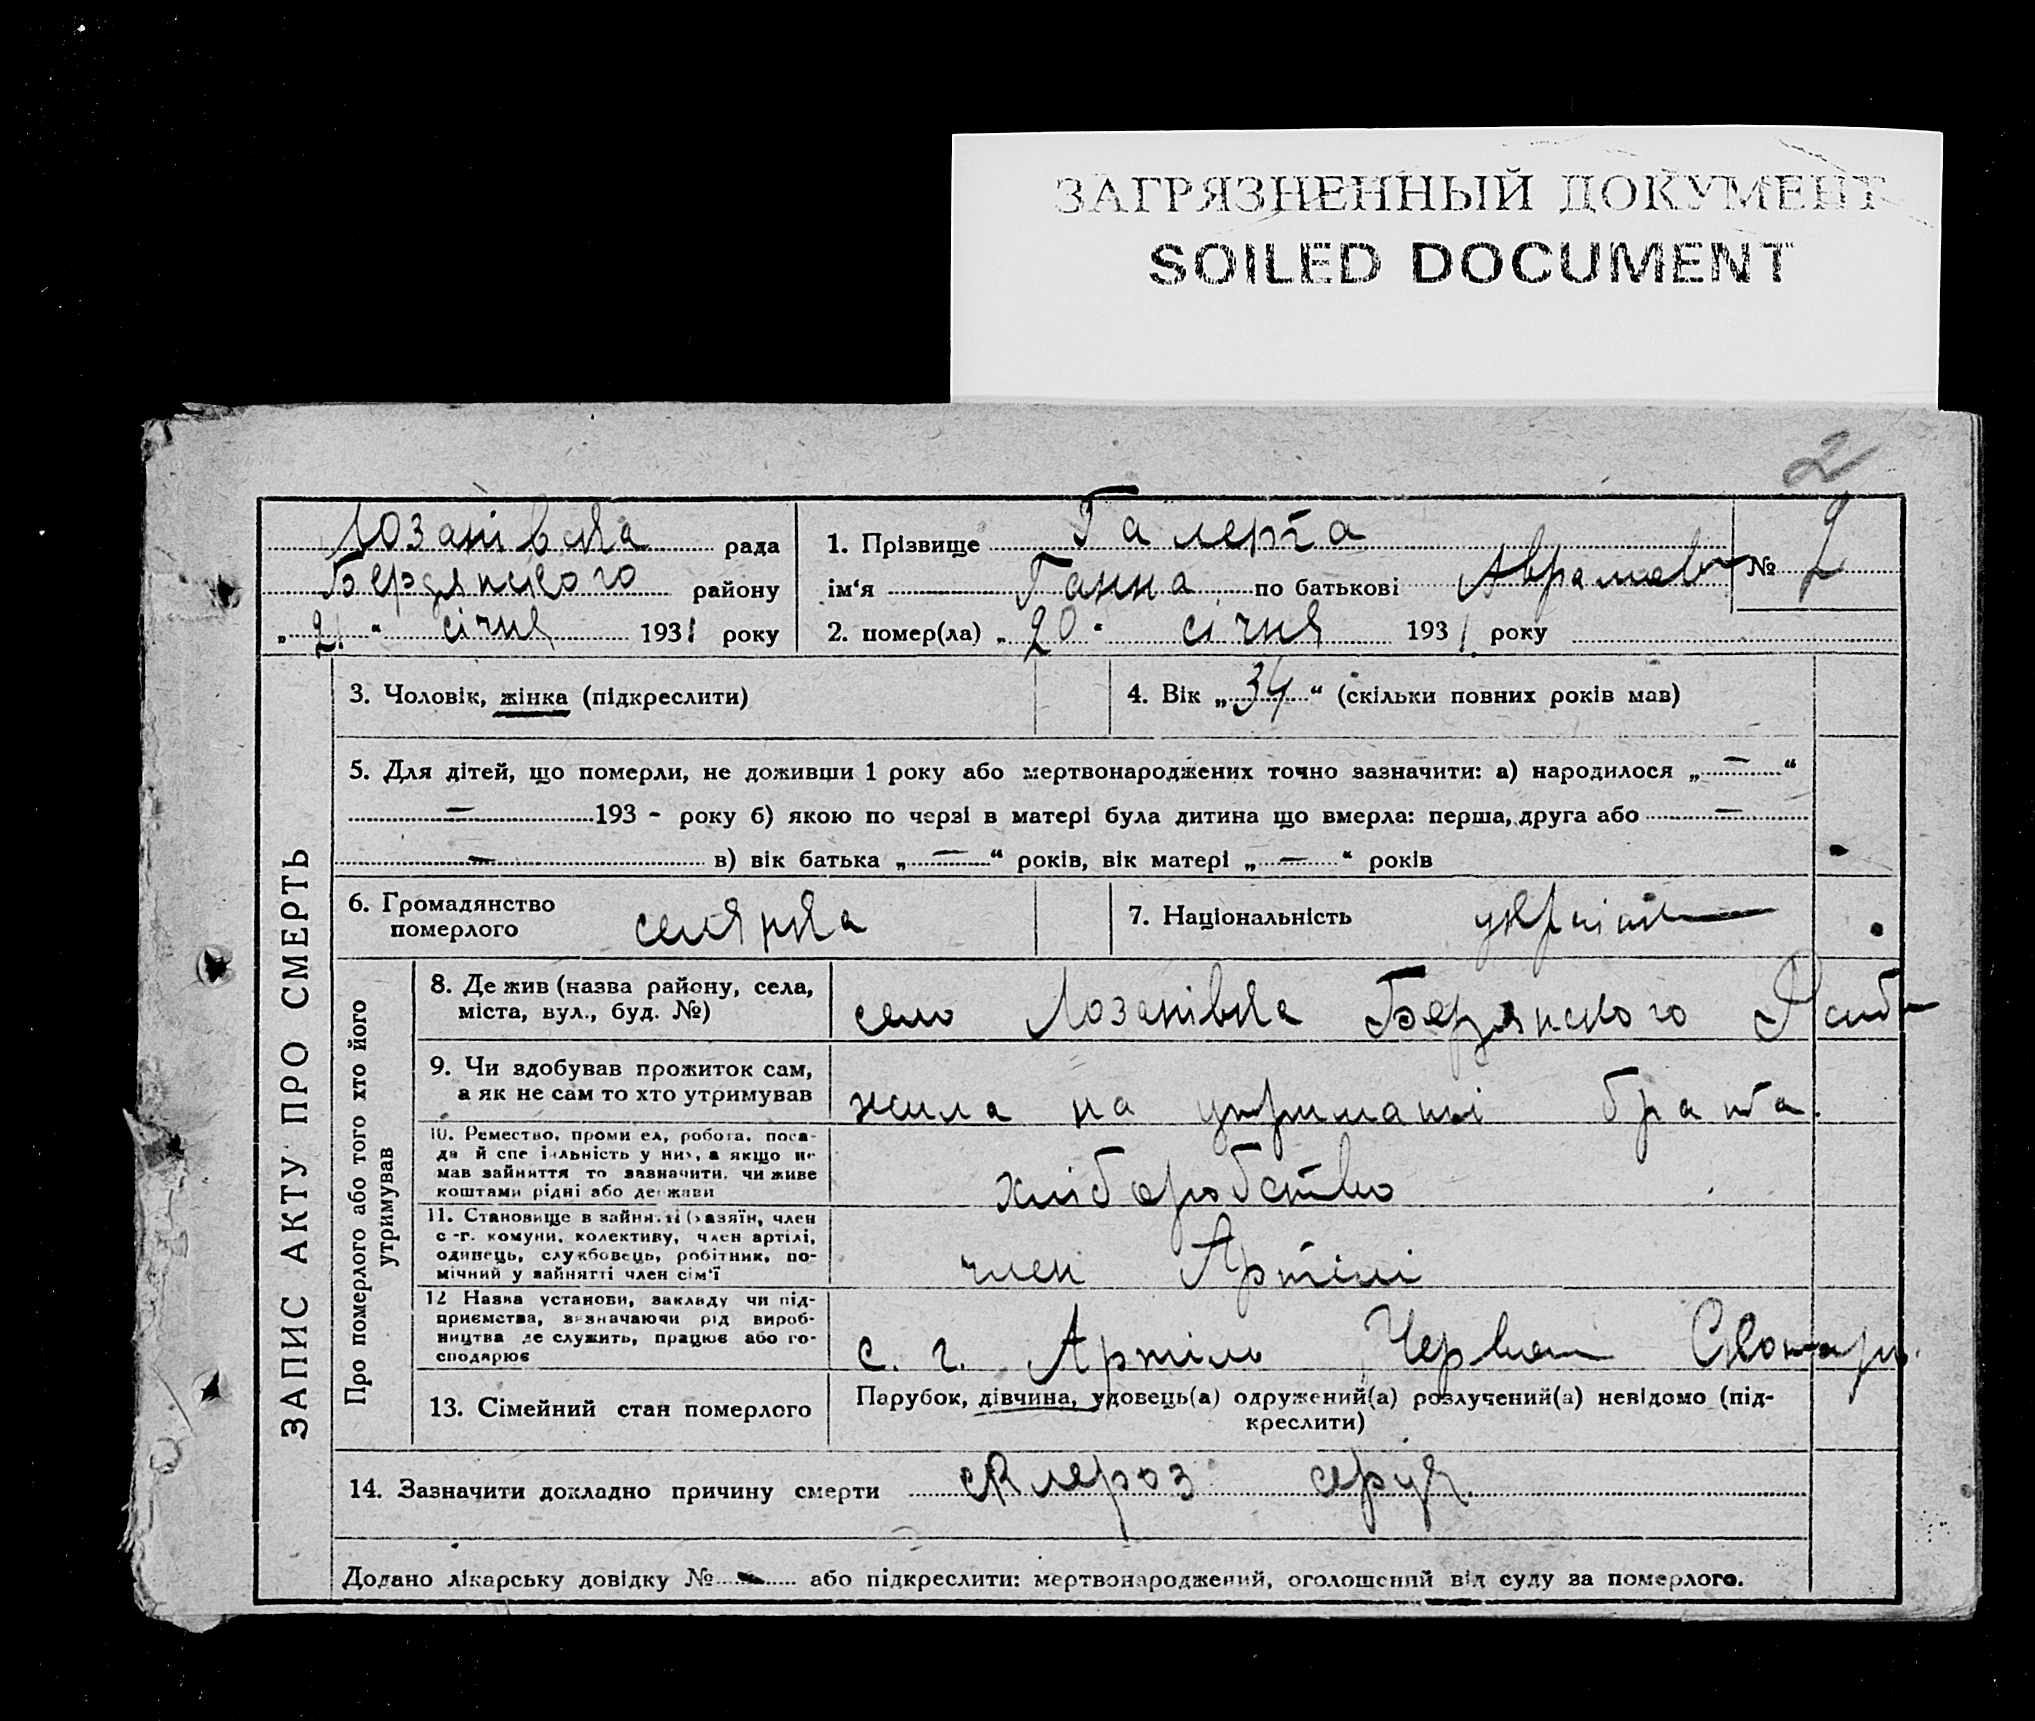 ЗАГРЯЗНЕННЫЙ ДОКУМЕНТ
SOILED DOCUMENT
2
Лозанівська рада
Бердянского району
„21“ січня 1931 року
1. Прізвище Галерта
ім‘я Ганна по батькові Аврамовн
№ 2
2. помер(ла) „20“ січня 1931 року
ЗАПИС АКТУ ПРО СМЕРТЬ
3. Чоловік, жінка (підкреслити)
4. Вік „34“ (скільки повних років мав)
5. Для дітей, що померли, не доживши 1 року або мертвонароджених точно зазначити: а) народилося „—“
— 193 - року б) якою по черзі в матері була дитина що вмерла: перша, друга або —
— в) вік батька „—“ років, вік матері „—“ років
6. Громадянство
померлого
селянка
7. Національність
Про померлого або того хто його
утримував
8. Де жив (назва району, села,
міста, вул., буд. №)
село Лозанівка Бердянского
9. Чи здобував прожиток сам,
а як не сам то хто утримував
жила на утриманні брата.
10. Ремество, проми ел, робота, поса-
да й спе іальність у них, а якщо не
мав зайняття то зазначити, чи живе
коштами рідні або держави
хліборобство
11. Становище в зайнятті (хазяїн, член
с-г. комуни, колективу, член артілі,
одинець, службовець, робітник, по-
мічний у зайнятті член сім‘ї
член Артілі
12 Назва установи, закладу чи під-
приємства, зазначаючи рід вироб-
ництва де служить, працює або го-
сподарює
с. г. Артіль Червон
13. Сімейний стан померлого
Парубок, дівчина, удовець(а) одружений(а) розлучений(а) невідомо (під-
креслити)
14. Зазначити докладно причину смерти склероз серця
Додано лікарську довідку № — або підкреслити: мертвонароджений, оголошений від суду за померлого.